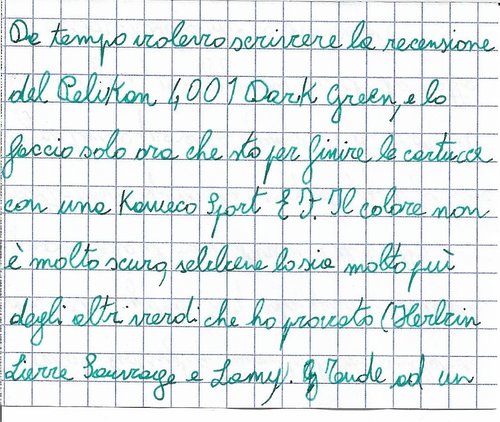 Da tempo volevo scrivere la recensione
del Pelikan 4001 Dark Green, e lo
faccio solo ora che sto per finire le cartucce
con una Kaweco Sport EF. Il colore non
è molto scuro, sebbene lo sia molto più
degli altri verdi che ho provato (Herbin
Lierre Sauvage e Lamy). Tende ad un